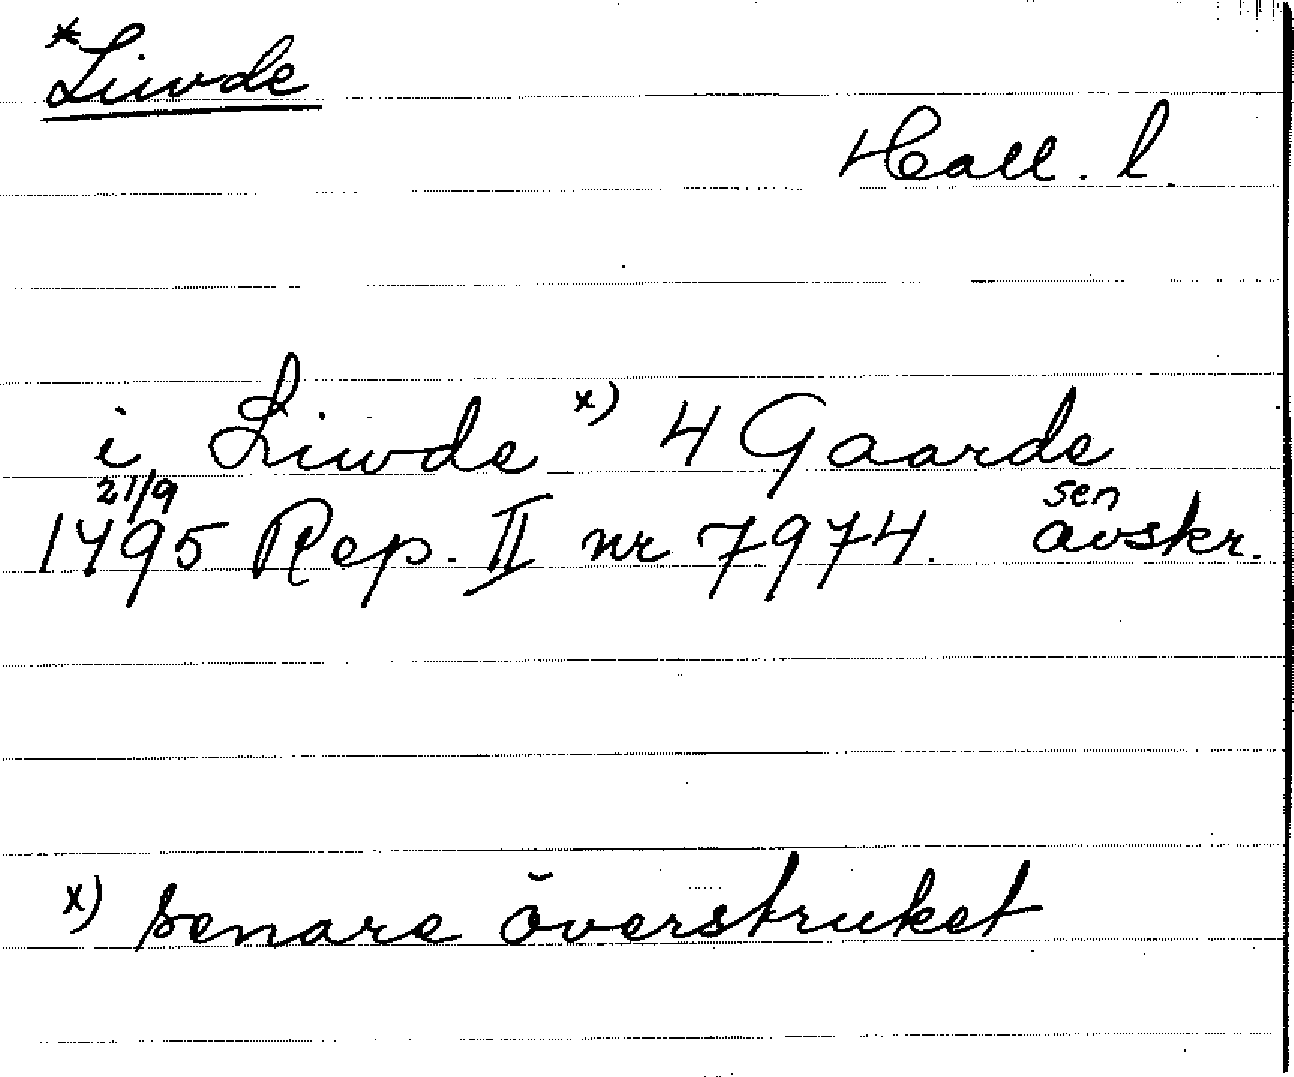 *Liwde
Hall. l.
i Liwde x) 4 Gaarde
21/9 sen
1495 Rep. II nr 7974. avskr.
x) senare överstruket